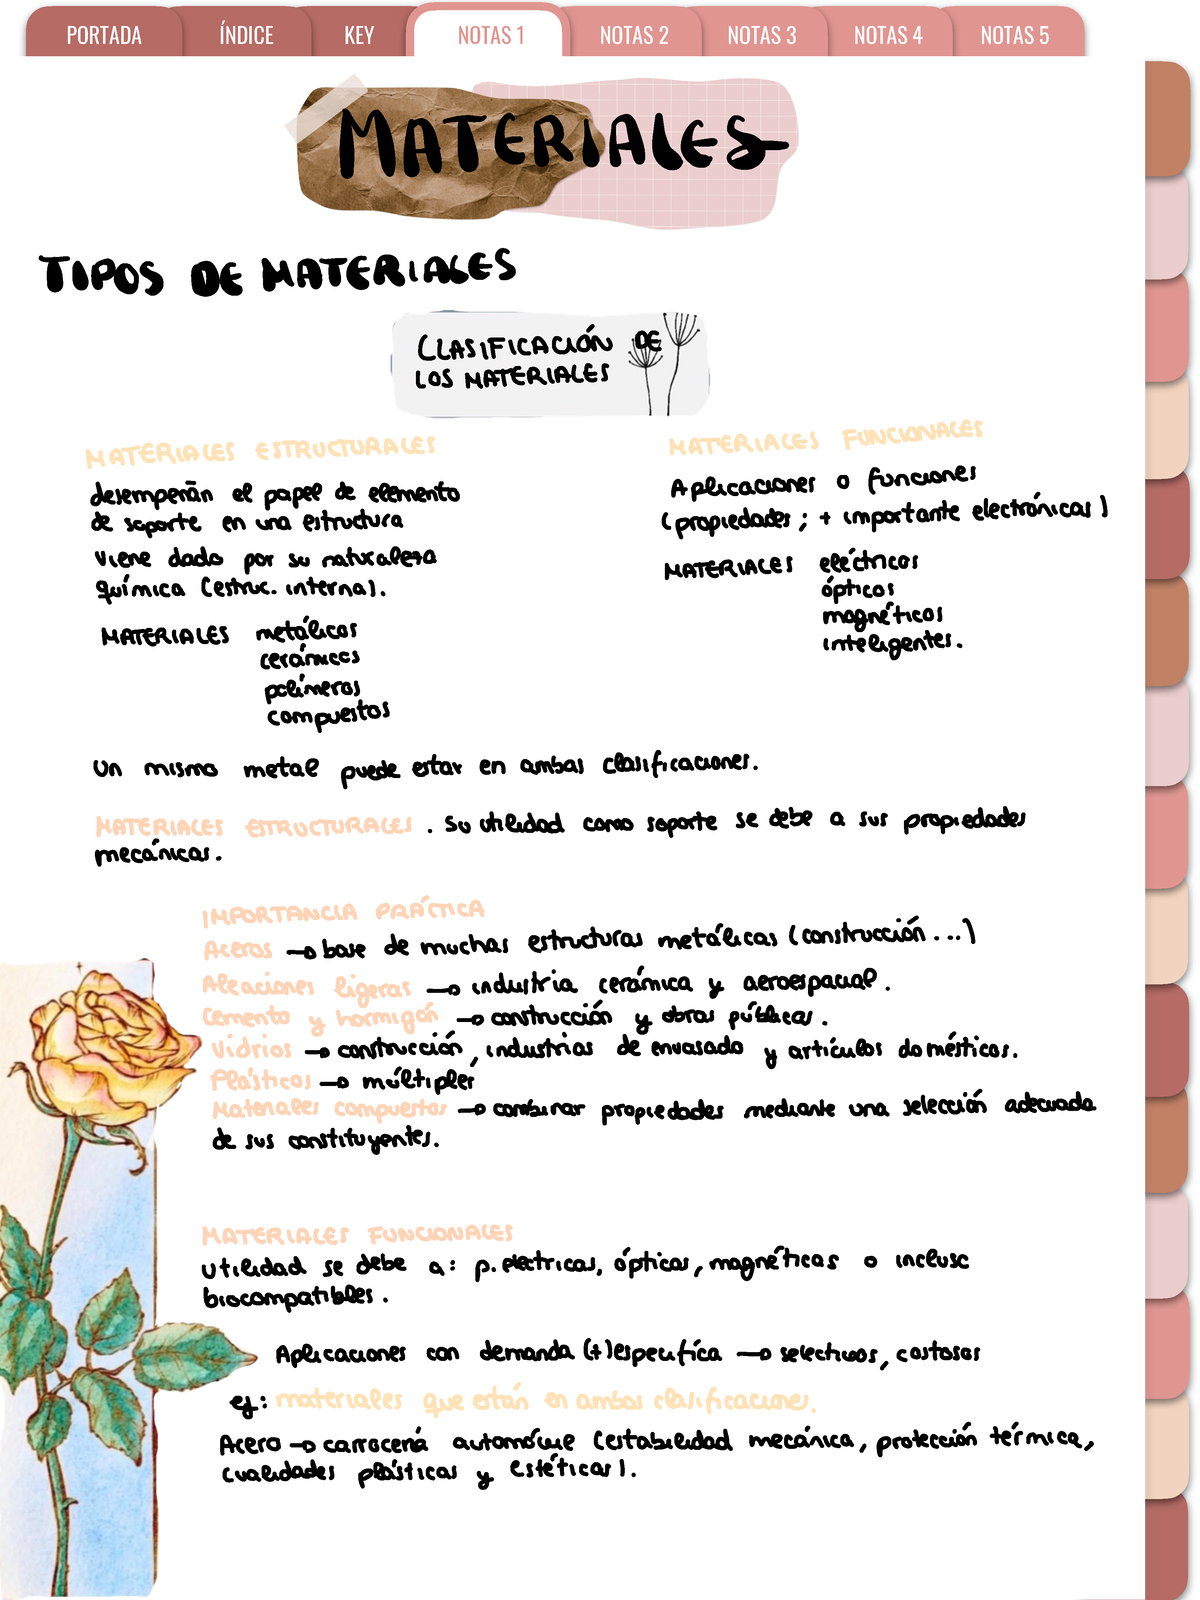 PORTADA ÍNDICE KEY NOTAS 1 NOTAS 2 NOTAS 3 NOTAS 4 NOTAS 5
MATERIALES
TIPOS DE MATERIALES
CLASIFICACIÓN DE
LOS MATERIALES
MATERIALES ESTRUCTURALES
desempeñan el papel de elemento
de soporte en una estructura
viene dado por su naturaleza
química (estruc. interna).
MATERIALES metálicos
cerámicos
polímeros
compuestos
MATERIALES FUNCIONALES
Aplicaciones o funciones
(propiedades; + importante electrónicas)
MATERIALES eléctricos
ópticos
magnéticos
inteligentes.
Un mismo metal puede estar en ambas clasificaciones.
MATERIALES ESTRUCTURALES. Su utilidad como soporte se debe a sus propiedades
mecánicas.
IMPORTANCIA PRÁCTICA
Aceros → base de muchas estructuras metálicas (construcción...)
Aleaciones ligeras → industria cerámica y aeroespacial.
Cemento y hormigón → construcción y obras públicas.
Vidrios → construcción, industrias de envasado y artículos domésticos.
Plásticos → múltiples
Materiales compuestos → combinar propiedades mediante una selección adecuada
de sus constituyentes.
MATERIALES FUNCIONALES
utilidad se debe a: p. eléctricas, ópticas, magnéticas o incluso
biocompatibles.
Aplicaciones con demanda (+) específica → selectivos, costosos
ej: materiales que están en ambas clasificaciones.
Acero → carrocería automóvil (estabilidad mecánica, protección térmica,
cualidades plásticas y estéticas).